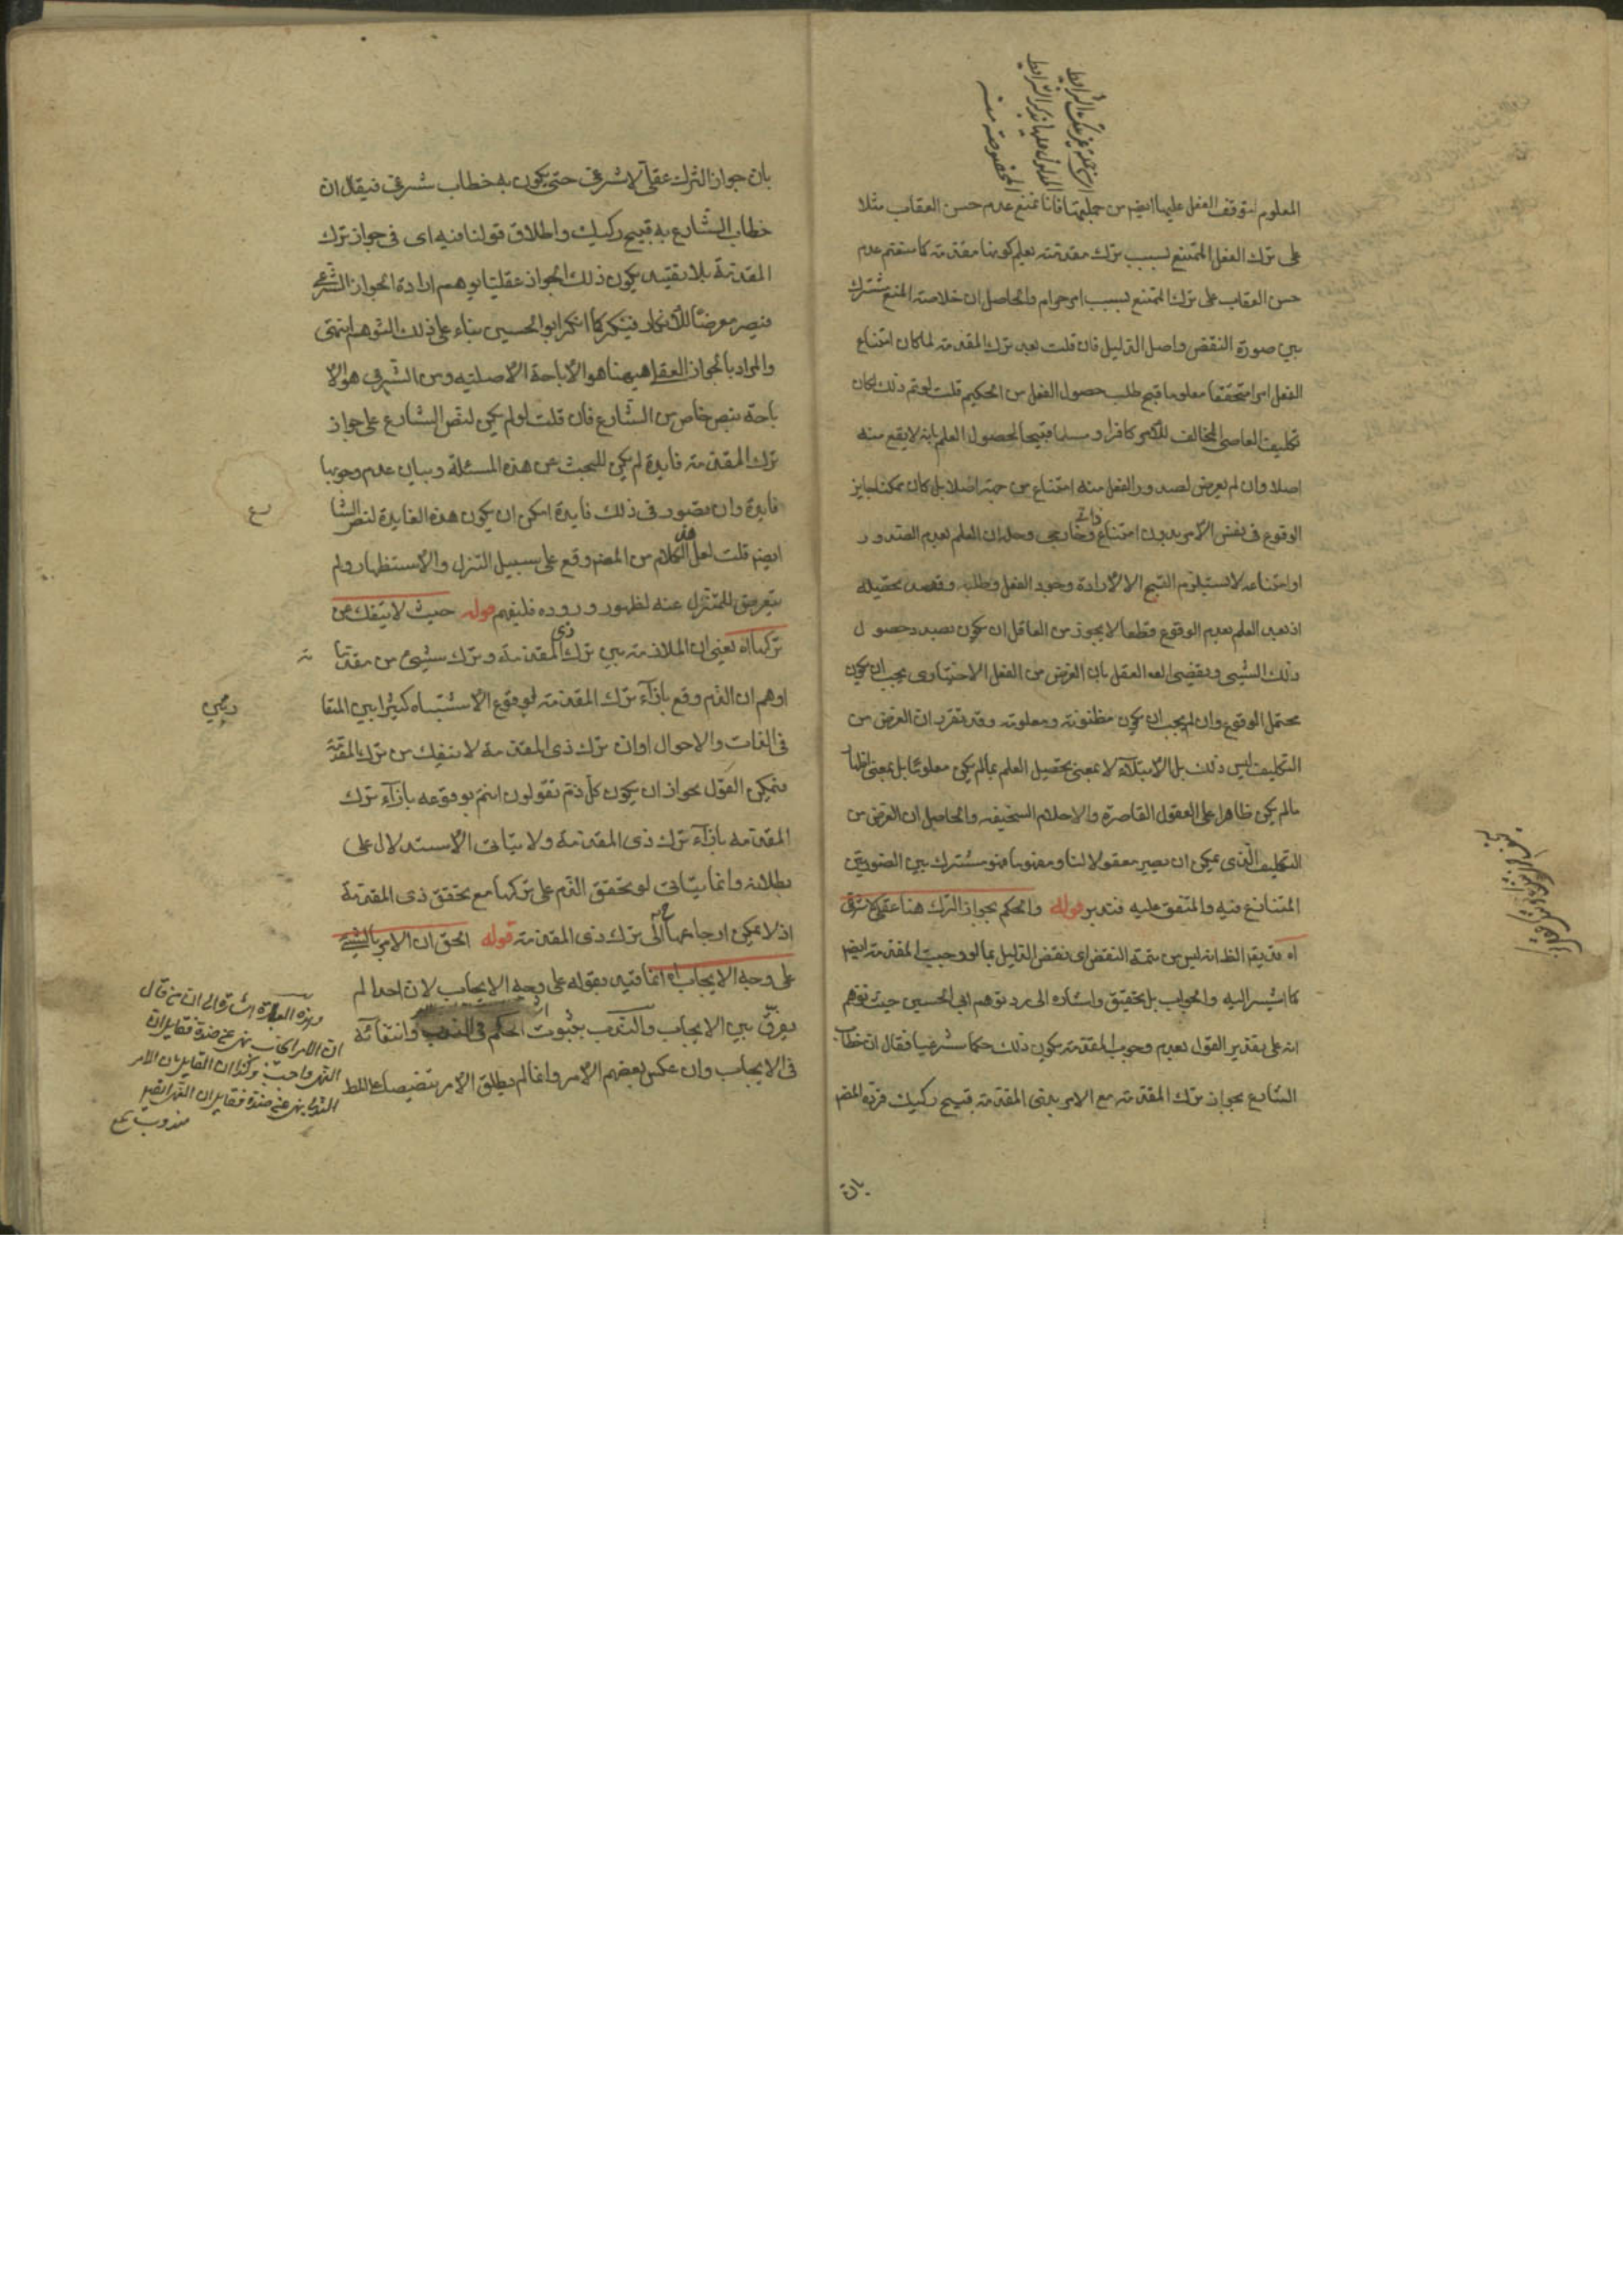 المعلوم توقف الفعل عليها ايضم من جملتها فاذا امتنع عدم حسن العقاب مثلا
على ترك الفعل الممتنع بسبب ترك مقدمته يعلم كونها مقدمته كما ستقم عدم
حسن العقاب على ترك الممتنع بسبب امر حرام والحاصل ان خلاصة المنع مشترك
بين صورة النقض واصل الدليل فان قلت بعد ترك المقدمة لما كان امتناع
الفعل امرا متحققا معلوما قبح طلب حصول الفعل من الحكيم قلت لو تم ذلك لكان
تكليف العاصى المخالف للامر كافرا و مسلما قبيحا لحصول العلم بانه لا يقع منه
اصلا وان لم يعرض لصدور الفعل منه امتناع من جهة اصلا بل كان ممكنا جايز
الوقوع فى نفس الامر بدون امتناع ذاتى وخارجى وحله ان العلم بعدم الصدور
او امتناعه لا يستلزم القبح الا لارادة وجود الفعل وطلبه وقصد تحصيله
اذ بعد العلم بعدم الوقوع قطعا لا يجوز من العاقل ان يكون بصدد حصول
ذلك الشيئ ويقضى العقل بان الغرض من الفعل الاختيارى يجب ان يكون
محتمل الوقوع وان لم يجب ان يكون مظنونه ومعلومه وقد تقرر ان الغرض من
التكليف ليس ذلك بل الابتلآء لا بمعنى تحصيل العلم بما لم يكن معلوما بل بمعنى اظهار
ما لم يكن ظاهرا على العقول القاصرة والاحلام السخيفه والحاصل ان الغرض من
التكليف الذى يمكن ان يصير معقولا لنا ومفهوما فهو مشترك بين الصورتين
المتنازع فيه والمتفق عليه فتدبر قوله والحكم بجواز الترك هنا عقلى لا شرعى
اه قد يقر الظ انه ليس من تتمة النقض اى نقض الدليل بما لو وجبت المقدمة ايضم
كما اشير اليه والجواب بل تحقيق واشاره الى رد توهم ابى الحسين حيث توهم
انه على تقدير القول بعدم وجوب المقدمة يكون ذلك حكما شرعيا فقال ان خطاب
الشارع بجواز ترك المقدمة مع الامر بذى المقدمة قبيح ركيك فرده المضم
بان
بان جواز الترك عقلى لا شرعى حتى يكون به خطاب شرعى فيقال ان
خطاب الشارع به قبيح ركيك واطلاق قولنا فيه اى فى جواز ترك
المقدمة بلا تقييد يكون ذلك الجواز عقليا يوهم ارادة الجواز الشرعى
فيصير معرضا للانكار فينكر كما انكر ابو الحسين بناء على ذلك التوهم انتهى
والمراد بالجواز العقلى هيهنا هو الاباحة الاصلية ومن الشرعى هو الا
باحة بنص خاص من الشارع فان قلت لو لم يكن لنص الشارع على جواز
ترك المقدمة فايدة لم يكن للبحث عن هذه المسئلة وبيان عدم وجوبها
فايدة وان تصور فى ذلك فايدة امكن ان يكون هذه الفايدة لنص الشا
رع
ايضم قلت لعل هذا الكلام من المضم وقع على سبيل التنزل والاستظهار ولم
يتعرض للمتنزل عنه لظهور وروده فليفهم قوله حيث لا ينفك عن
تركها اه يعنى ان الملازمة بين ترك ذى المقدمة وترك شيئ من مقدما
ته
اوهم ان الذم وقع بازآء ترك المقدمة لوقوع الاشتباه كثيرا بين المتقا
رنين
فى الذات والاحوال او ان ترك ذى المقدمة لا ينفك من ترك المقدمة
فيمكن القول بجواز ان يكون كل ذم تقولون انتم بوقوعه بازآء ترك
المقدمة بازآء ترك ذى المقدمة ولا يتاتى الاستدلال على
بطلانه وانما يتاتى لو تحقق الذم على تركها مع تحقق ذى المقدمة
اذ لا يمكن ارجاعها ح الى ترك ذى المقدمة قوله الحق ان الامر بالشيئ
على وجه الايجاب اه انما قيد بقوله على وجه الايجاب لان احدا لم
يفرق بين الايجاب والندب بثبوت الحكم فى الندب وانتفائه
فى الايجاب وان عكس بعضهم الامر وانما لم يطلق الامر تنصيصا على
وهذه العبارة اشارة الى ان من قال
ان الامر الايجابى نهى عن ضده فقايل ان
النهى واجب وكذا ان القايل بان الامر
الندبى نهى عن ضده فقايل ان النهى ايضم
مندوب